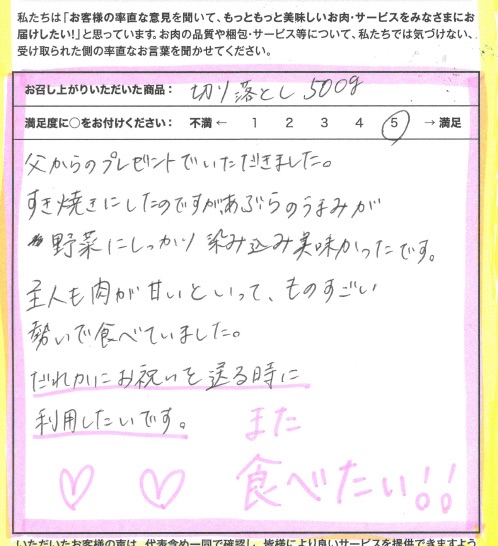 私たちは「お客様の率直な意見を聞いて、もっともっと美味しいお肉・サービスをみなさまにお
届けしたい！」と思っています。お肉の品質や梱包・サービス等について、私たちでは気づけない、
受け取られた側の率直なお言葉を聞かせてください。
お召し上がりいただいた商品： 切り落とし 500g
満足度に○をお付けください： 不満 ← 1 2 3 4 5 → 満足
父からのプレゼントでいただきました。
すき焼きにしたのですがあぶらのうまみが
野菜にしっかり染み込み美味かったです。
主人も肉が甘いといって、ものすごい
勢いで食べていました。
だれかにお祝いを送る時に
利用したいです。
また
食べたい!!
いただいたお客様の声は、代表含め一同で確認し、皆様により良いサービスを提供できますよう